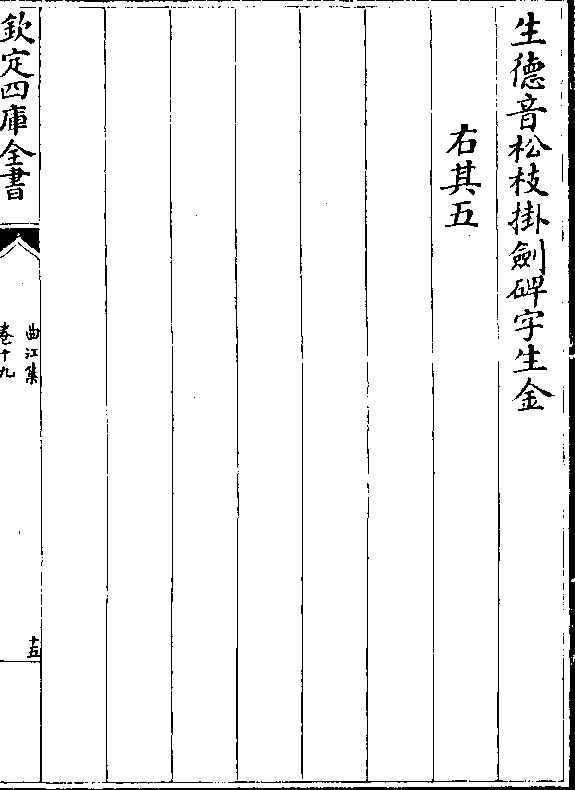 生德音松枝掛劍碑字生金
右其五
欽定四庫全書
曲江集
卷十九
十五